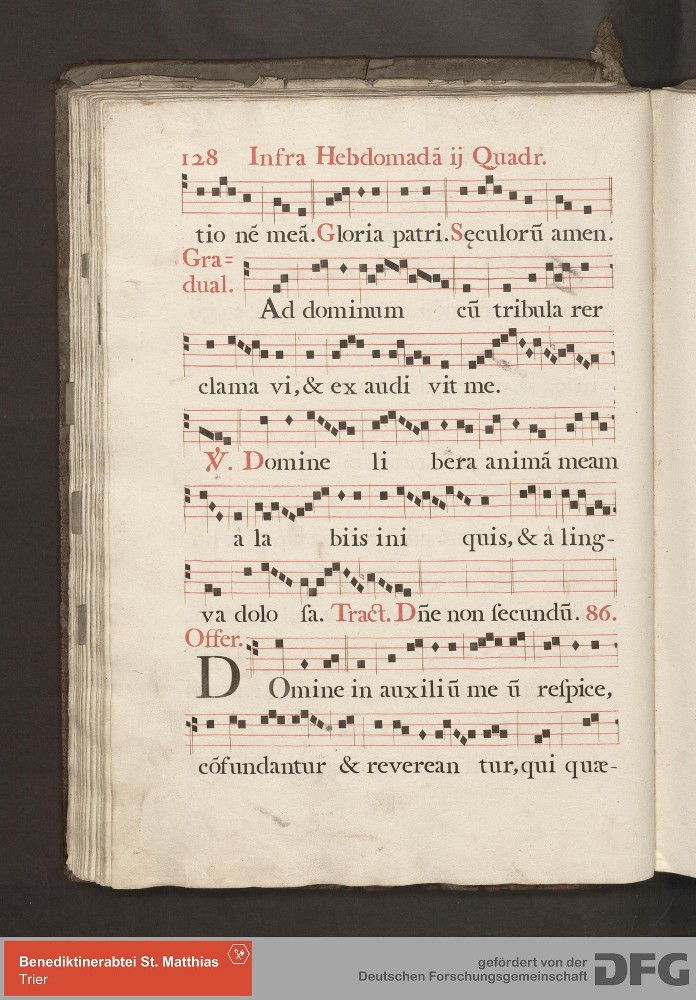 128 Infra Hebdomadã ij Quadr.
tio nẽ meã. Gloria patri. Sęculorũ amen.
Gra=
dual.
Ad dominum cũ tribula rer
clama vi, & ex audi vit me.
℣. Domine li bera animã meam
à la biis ini quis, & à ling-
va dolo ſa. Tract. Dñe non ſecundũ. 86.
Offer.
DOmine in auxiliũ me ũ reſpice,
cõfundantur & reverean tur, qui quæ-
Benediktinerabtei St. Matthias
Trier
gefördert von der
Deutschen Forschungsgemeinschaft
DFG